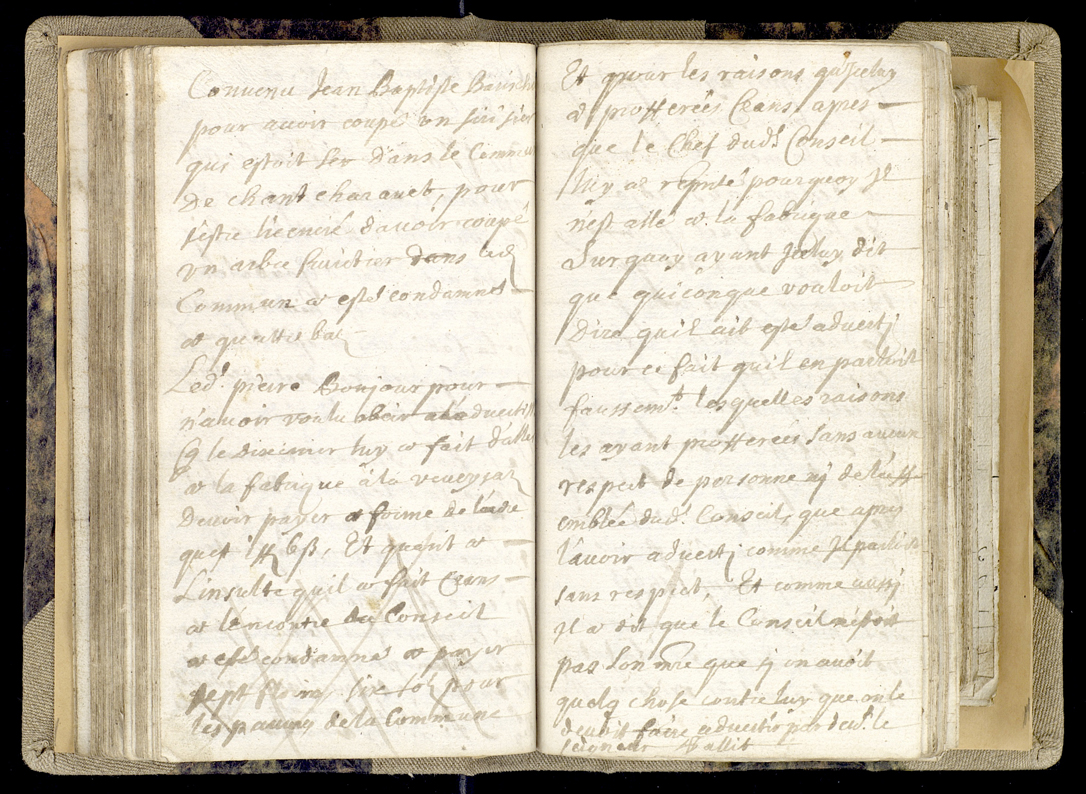 Convenu Jean Baptiste
pour avoir coupé un
qui estoit sur dans le Commun
De chant charavet, pour
s'estre licencié d'avoir coupé
un arbre fruictier dans led
Commun a esté condamné
a quattre bat
Led.t pierre Bonjour pour
n'avoir voulu obeir a l'advertiss
q le dixenier luy a fait d'aller
a la fabrique a la
Devoir payer a forme de
quest 6ß, Et quant a
L'insulte quil a fait Ceans
a lencontre du Conseil
a esté condamné a payer
sept florins six sols pour
les pauvres de la Commune
Et pour les raisons qu'Jceluy
a profferées Ceans apres
que le Chef dud.t Conseil
luy a pourquoy Jl
n'est allé a la fabrique
Surquoy ayant Jceluy dit
que quiconque vouloit
Dire quil ait esté adverti
pour ce fait quil en parloit
faussem.t lesquelles raisons
les ayant profferées sans aucun
respect de personne nj de l'ass
emblée dud.t Conseil, que apres
l'avoir advertj comme Jl parloit
sans respect, Et comme aussj
Jl a dit que le Conseil n'estoit
pas son mre que sj on avoit
quelq chose contre luy que on le
devoit faire advertir par dev.t le
seigneur Ballif